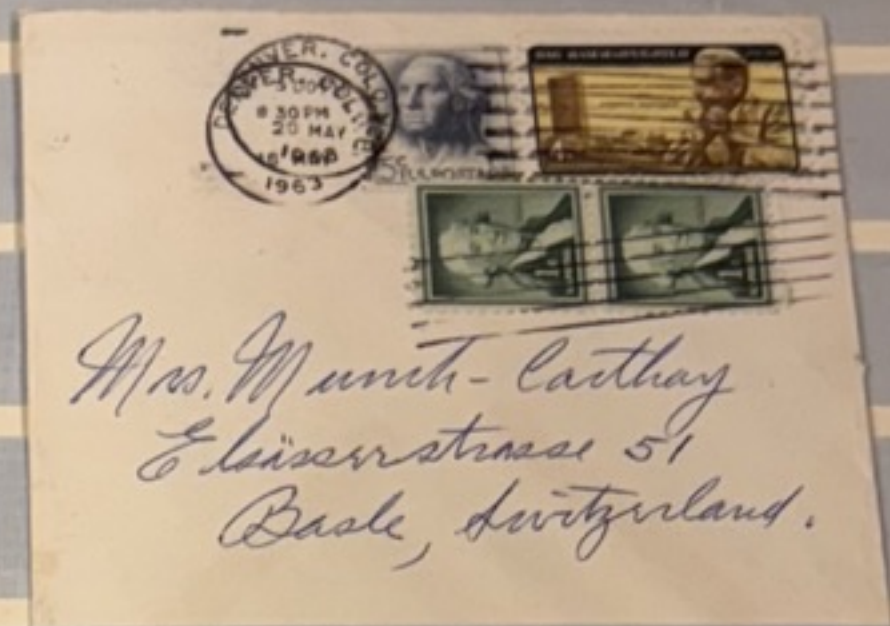 DENVER, COLO.
DENVER, COLO.
8 30 PM
20 MAY
1963
1963
5c U.S. POSTAGE
Mrs. Munch-Carthay
Elsässerstrasse 51
Basle, Switzerland.